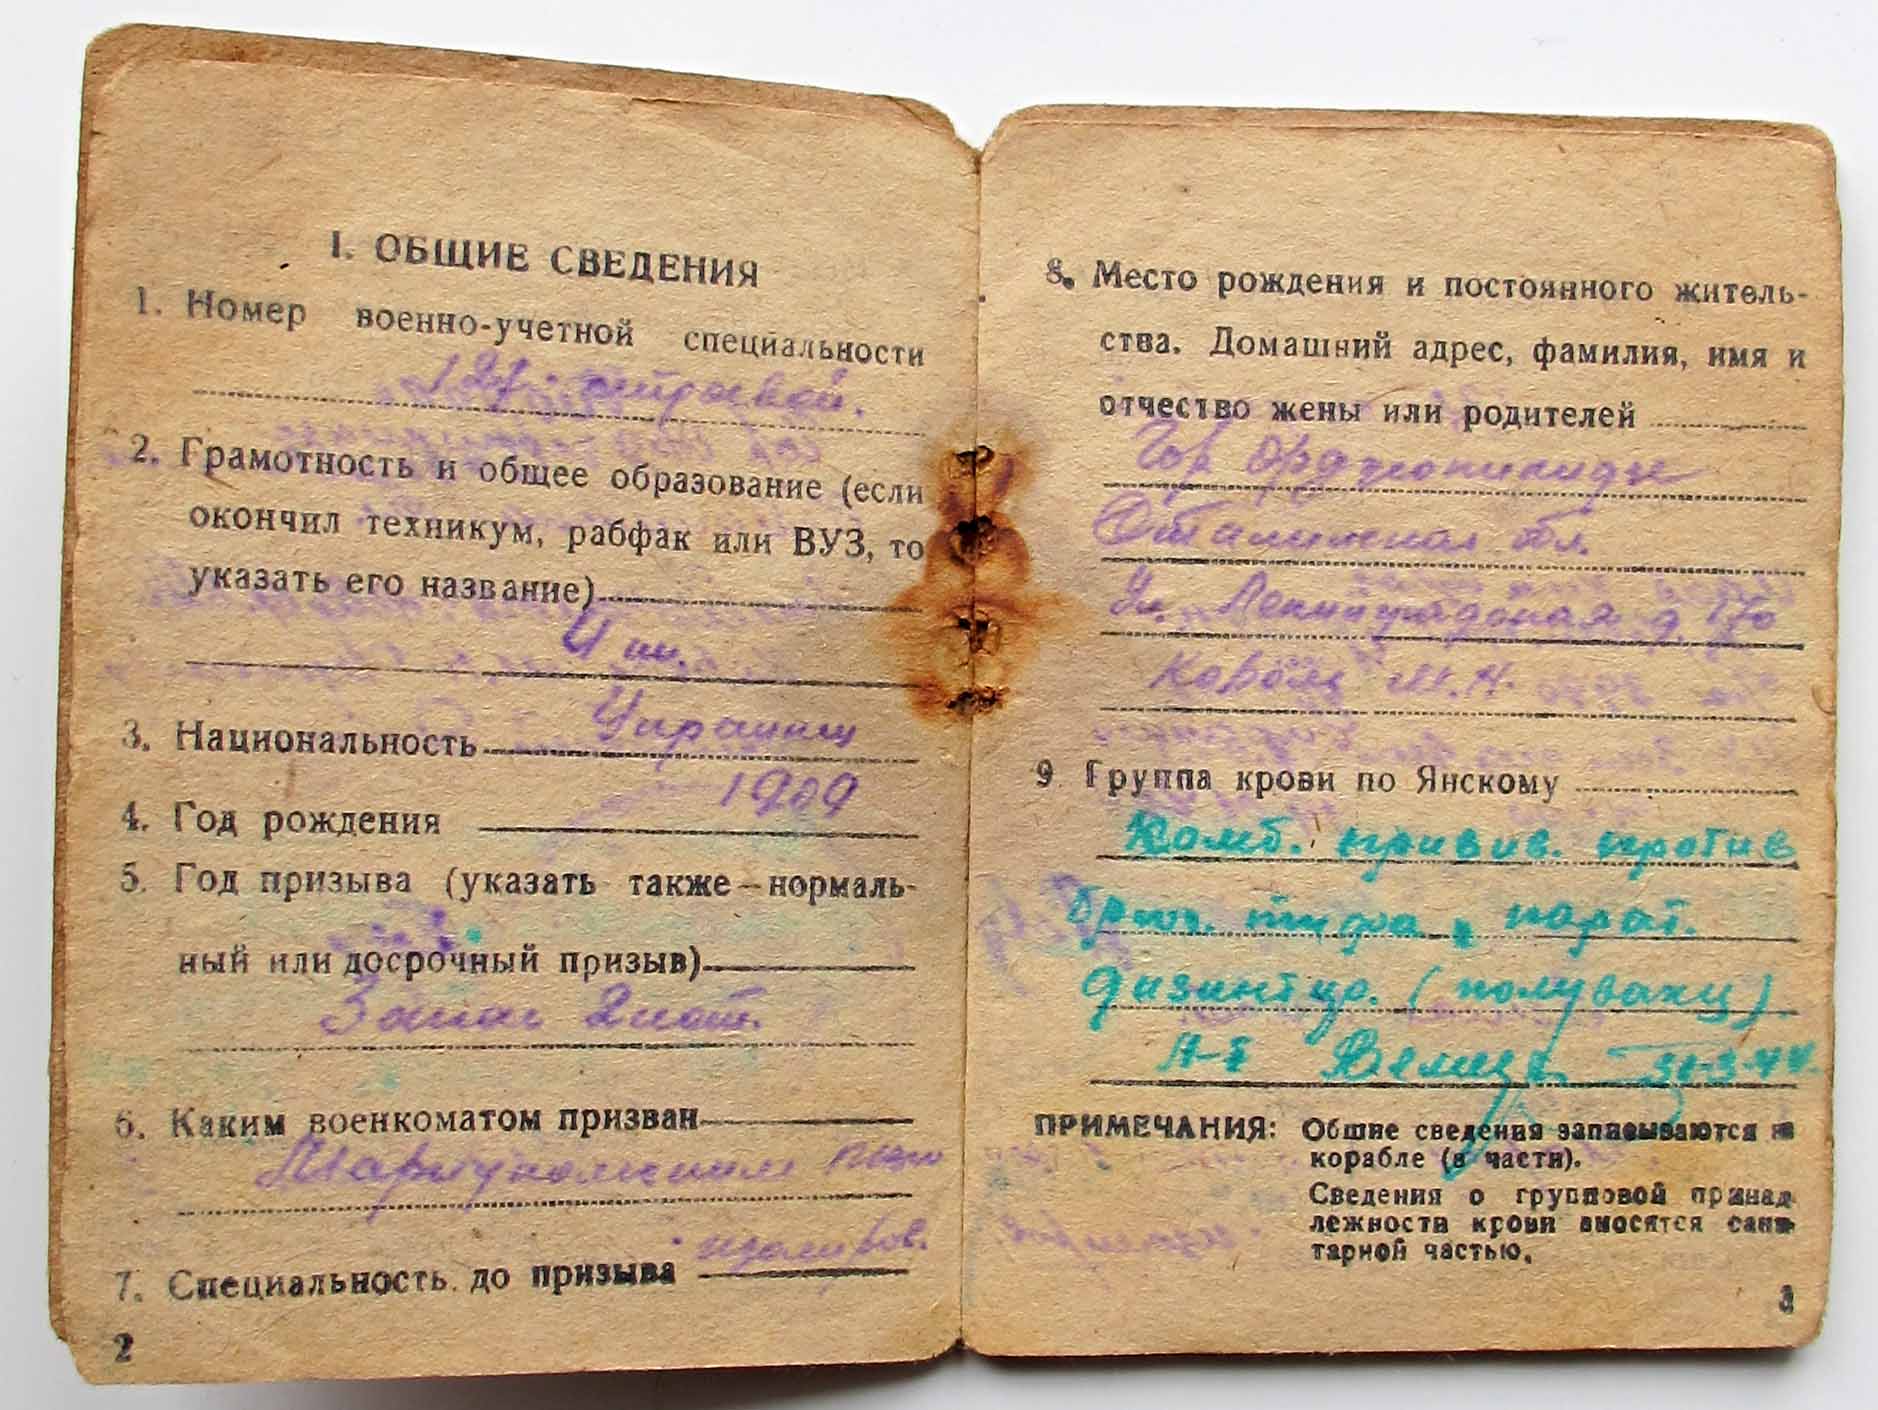 I. ОБЩИЕ СВЕДЕНИЯ
1. Номер военно-учетной специальности
121 строевой.
2. Грамотность и общее образование (если
окончил техникум, рабфак или ВУЗ, то
указать его название)
4 кл.
3. Национальность Украинец
4. Год рождения 1909
5. Год призыва (указать также нормаль-
ный или досрочный призыв)
Запас
6. Каким военкоматом призван
Мариупольским
7. Специальность до призыва
2
8. Место рождения и постоянного житель-
ства. Домашний адрес, фамилия, имя и
отчество жены или родителей
Гор Орджоникидзе
Сталинская обл.
Ул. Ленинградская д 170
М.Н.
9 Группа крови по Янскому
Комб. привив. против
брюш. тифа, парат.
дизентер. (поливакц)
31-3-44.
ПРИМЕЧАНИЯ: Общие сведения записываются на
корабле (в части).
Сведения о групповой принад
лежности крови вносятся сани
тарной частью.
3